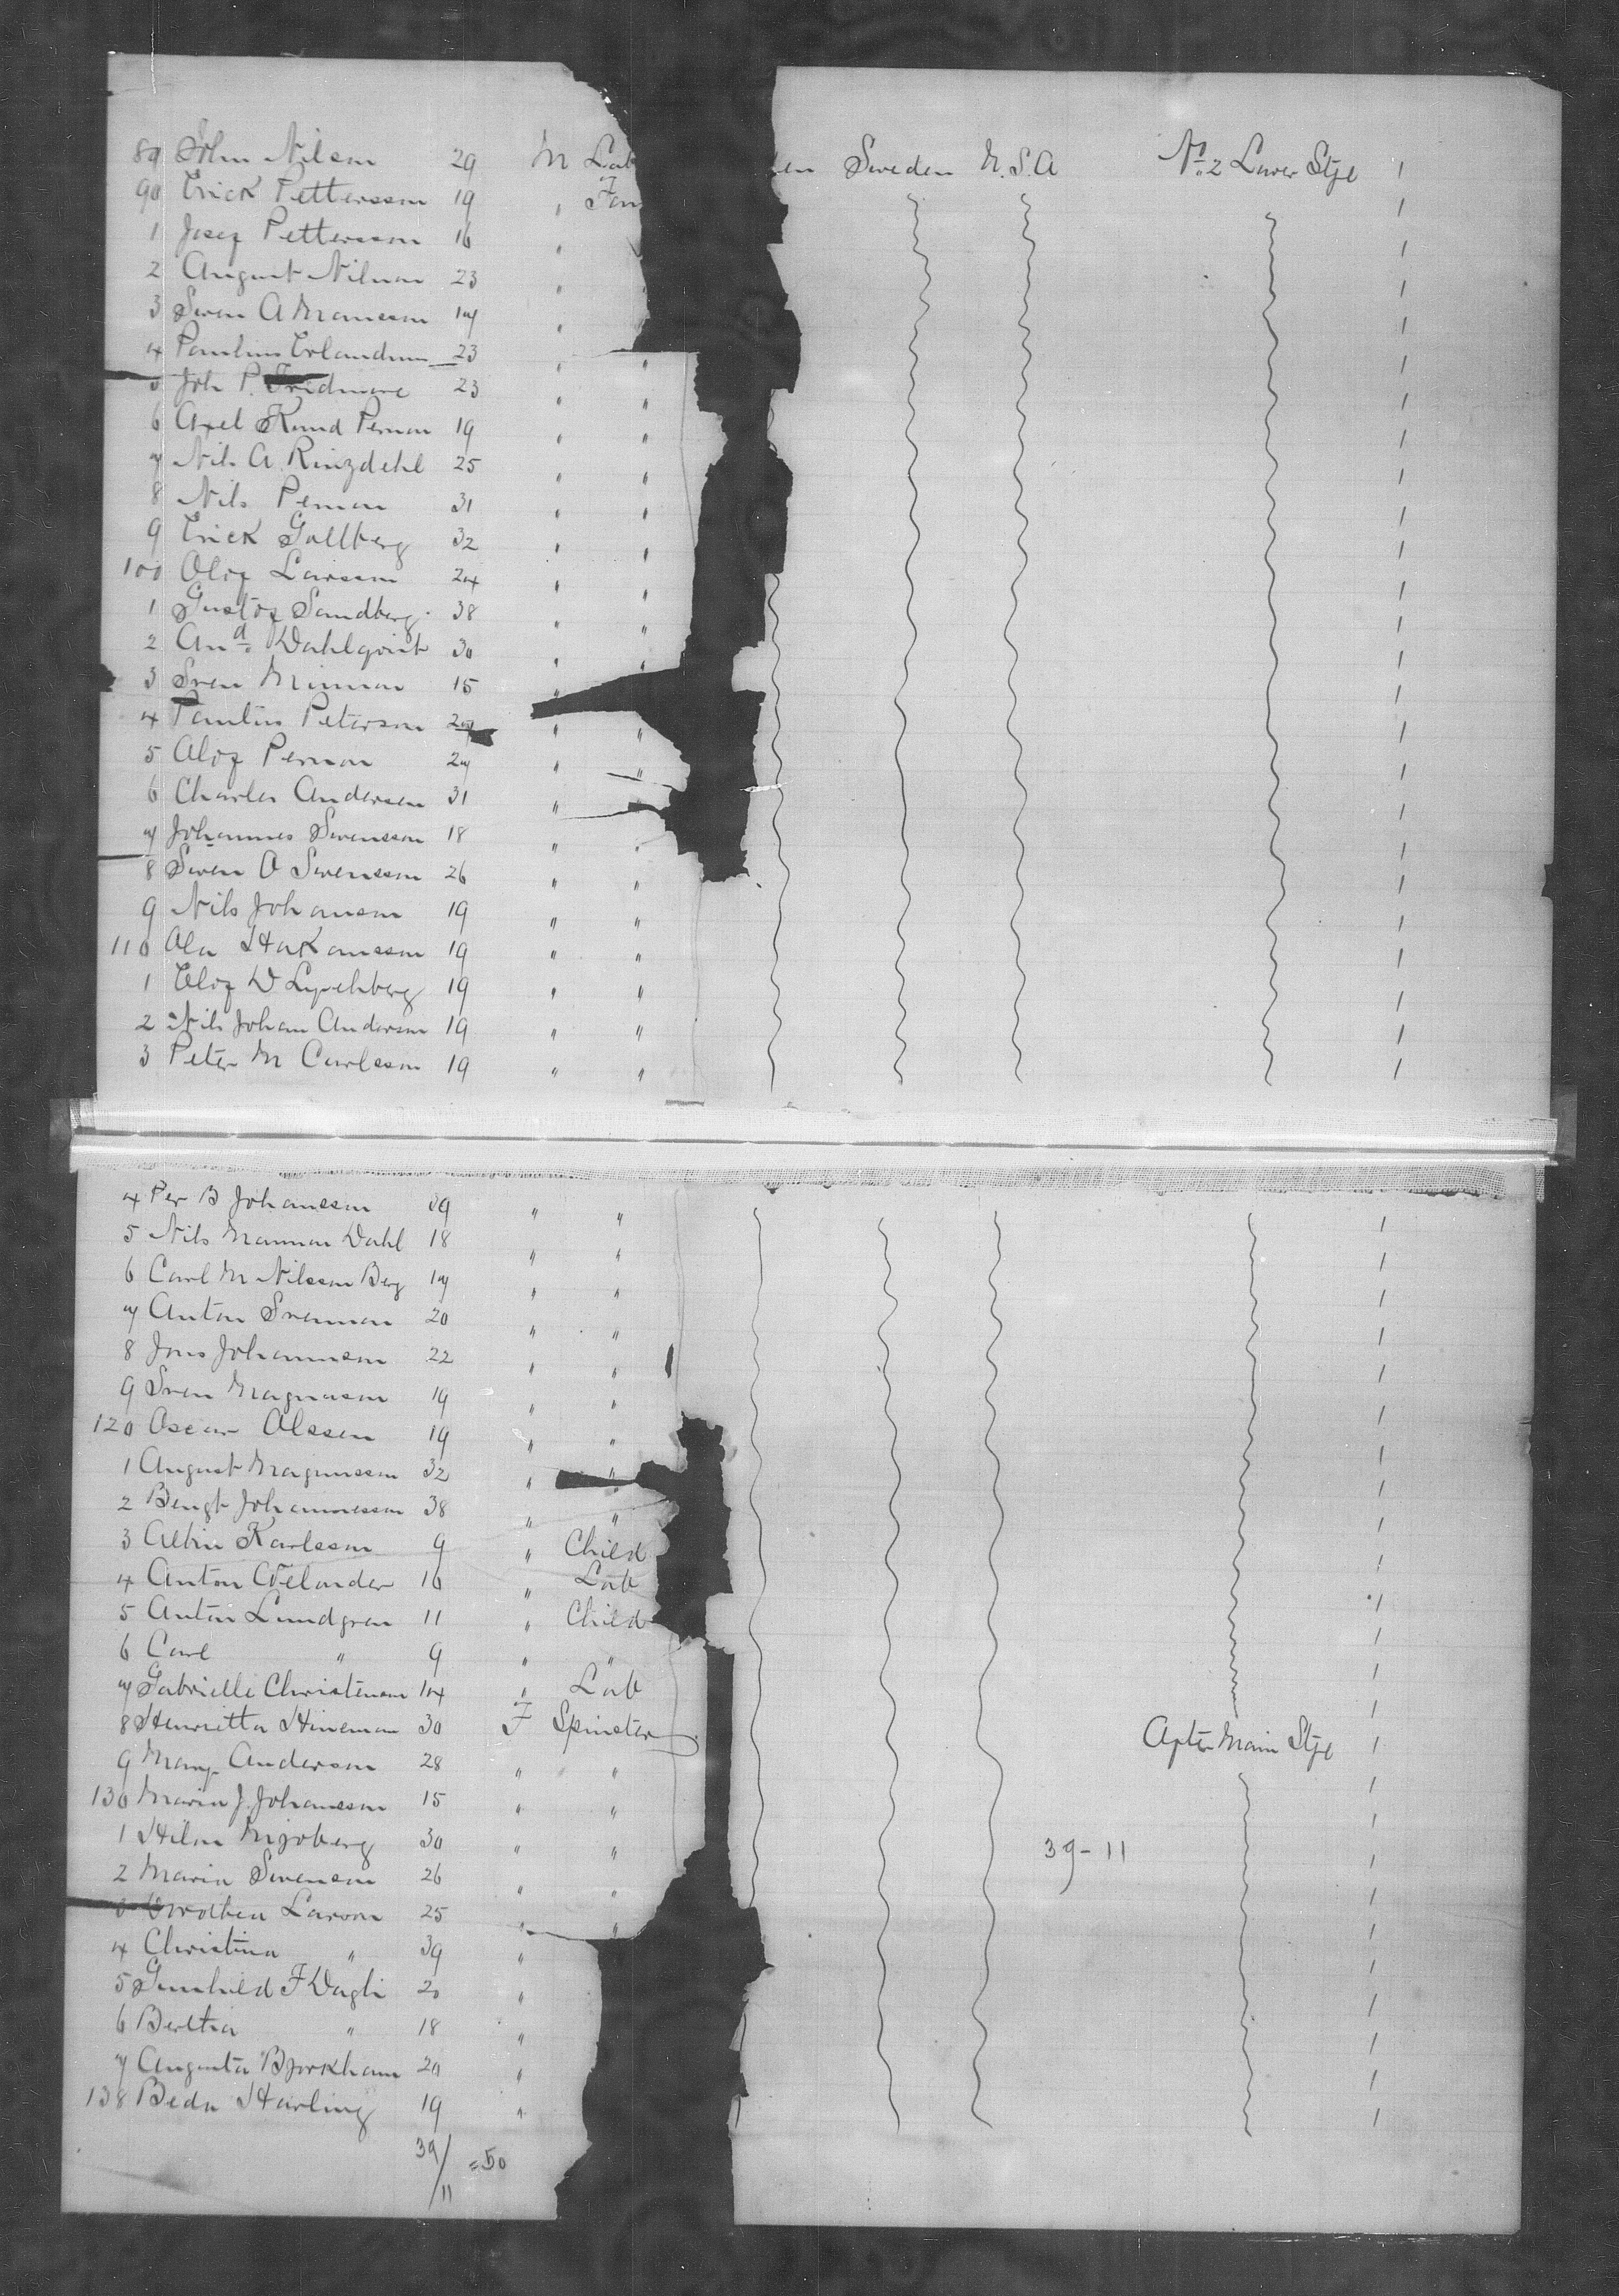 89 John Nilson 29 M Lab en Sweden U.S.A No 2 Lower Stge 1
90 Erick Pettersson 19 " Far 1
1 Josef Pettersson 16 " 1
2 August Nilsson 23 " " 1
3 Swen A Mansson 17 " 1
4 Paulus Erlandsson 23 " " 1
5 Joh P. 23 " " 1
6 Axel Knud Person 19 " " 1
7 Nils A Ringdehl 25 " " 1
8 Nils Person 31 " " 1
9 Erick Gullberg 32 " " 1
100 Olof Larsson 24 " " 1
1 Gustof Sandberg 38 " " 1
2 And. Dahlqvist 30 " " 1
3 Sven 15 " 1
4 Paulus Peterson " " 1
5 Olof Person 27 " " 1
6 Charles Andersen 31 " 1
7 Johannes Swensson 18 " " 1
8 Swen O Swensson 26 " " 1
9 Nils Johanson 19 " " 1
110 Ola Hakansson 19 " " 1
1 Elof D 19 " " 1
2 Nils Johan Anderson 19 " " 1
3 Peter M Carlsson 19 " " 1
4 Per B Johansson 39 " " 1
5 Nils Dahl 18 " " 1
6 Carl M Nilsson Berg 17 " " 1
7 Anton Svenson 20 " " 1
8 Jons Johannson 22 " " 1
9 Sven Magnuson 19 " " 1
120 Oscar Olssen 19 " " 1
1 August Magnusson 32 " " 1
2 Bengt Johannesson 38 " " 1
3 Albin Karlsson 9 " Child 1
4 Anton 16 " Lab 1
5 Anton Lundgren 11 " Child 1
6 Carl " 9 " " 1
7 Gabrielle Christenson 14 " Lab 1
8 Henrietta Hineman 30 F Spinster After Main Stge 1
9 Mary Anderson 28 " " 1
130 Maria J. Johansson 15 " " 1
1 Hilm Mjoberg 30 " " 39-11 1
2 Maria Swenson 26 " " 1
3 Dorothea Larson 25 " " 1
4 Christina " 39 " 1
5 Gunhild F Dagli 20 " 1
6 Bertha " 18 " 1
7 Augusta Bjorkham 20 " 1
138 Beda Harling 19 " 1
39/11 =50